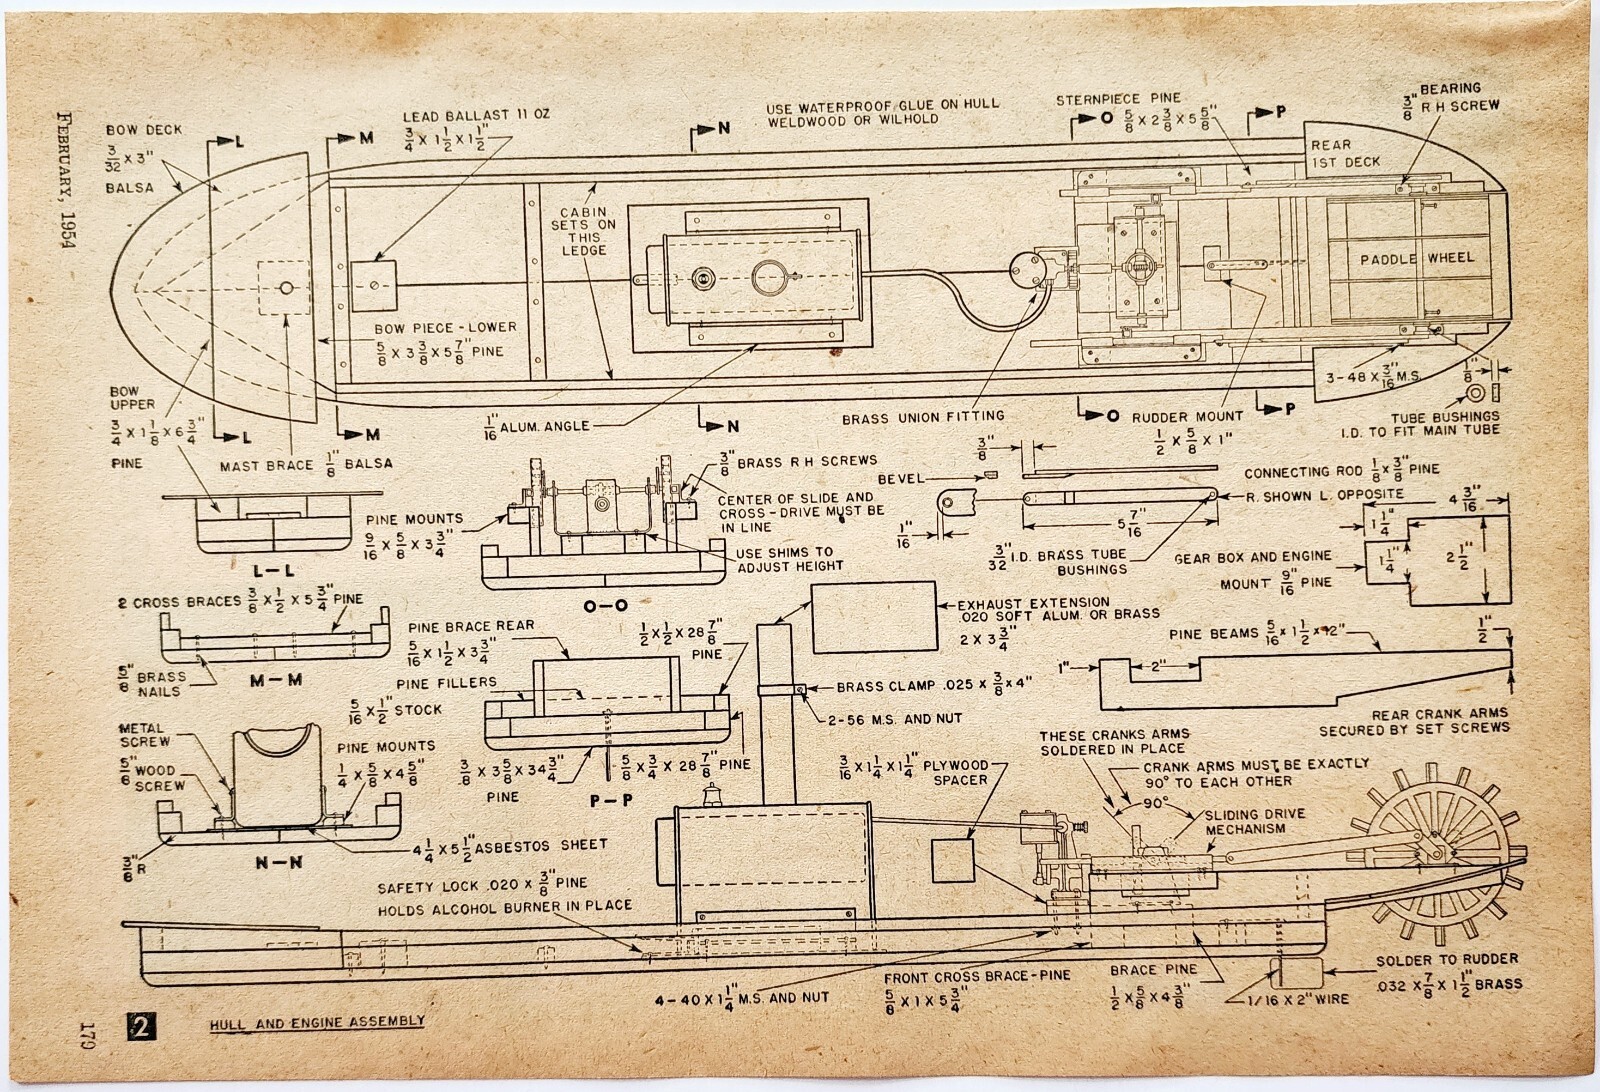 FEBRUARY, 1954
BOW DECK
3/32 X 3"
BALSA
L
M
LEAD BALLAST 11 OZ
3/4 X 1 1/2 X 1 1/2"
N
USE WATERPROOF GLUE ON HULL
WELDWOOD OR WILHOLD
STERNPIECE PINE
O 5/8 X 2 3/8 X 5 5/8"
P
BEARING
3/8" R H SCREW
REAR
1ST DECK
CABIN
SETS ON
THIS
LEDGE
PADDLE WHEEL
BOW PIECE - LOWER
5/8 X 3 3/8 X 5 7/8" PINE
3-48 X 3/16" M.S.
1/8"
BOW
UPPER
3/4 X 1 1/8 X 6 3/4"
PINE
L
M
MAST BRACE 1/8" BALSA
1/16" ALUM. ANGLE
N
BRASS UNION FITTING
O
RUDDER MOUNT
1/2 X 5/8 X 1"
P
TUBE BUSHINGS
I.D. TO FIT MAIN TUBE
L-L
PINE MOUNTS
9/16 X 5/8 X 3 3/4"
3/8" BRASS R H SCREWS
CENTER OF SLIDE AND
CROSS-DRIVE MUST BE
IN LINE
USE SHIMS TO
ADJUST HEIGHT
O-O
3/8"
BEVEL
1/16"
5 7/16"
3/32" I.D. BRASS TUBE
BUSHINGS
CONNECTING ROD 1/8 X 3/8" PINE
R. SHOWN L. OPPOSITE
4 3/16"
1 1/4"
1 1/4"
2 1/2"
GEAR BOX AND ENGINE
MOUNT 9/16" PINE
2 CROSS BRACES 3/8 X 1/2 X 5 3/4" PINE
5/8" BRASS
NAILS
M-M
PINE BRACE REAR
5/16 X 1 1/2 X 3 3/4"
1/2 X 1/2 X 28 7/8"
PINE
PINE FILLERS
5/16 X 1/2" STOCK
3/8 X 3 5/8 X 34 3/4"
PINE
5/8 X 3/4 X 28 7/8" PINE
P-P
EXHAUST EXTENSION
.020 SOFT ALUM. OR BRASS
2 X 3 3/4"
BRASS CLAMP .025 X 3/8 X 4"
2-56 M.S. AND NUT
PINE BEAMS 5/16 X 1 1/2 X 12"
1"
2"
1/2"
REAR CRANK ARMS
SECURED BY SET SCREWS
METAL
SCREW
5/8" WOOD
SCREW
PINE MOUNTS
1/4 X 5/8 X 4 5/8"
3/8" R
N-N
4 1/4 X 5 1/2" ASBESTOS SHEET
3/16 X 1 1/4 X 1 1/4" PLYWOOD
SPACER
THESE CRANKS ARMS
SOLDERED IN PLACE
CRANK ARMS MUST BE EXACTLY
90° TO EACH OTHER
90°
SLIDING DRIVE
MECHANISM
SAFETY LOCK .020 X 3/8" PINE
HOLDS ALCOHOL BURNER IN PLACE
4-40 X 1 1/4" M.S. AND NUT
FRONT CROSS BRACE-PINE
5/8 X 1 X 5 3/4"
BRACE PINE
1/2 X 5/8 X 4 3/8"
1/16 X 2" WIRE
SOLDER TO RUDDER
.032 X 7/8 X 1 1/2" BRASS
179
2
HULL AND ENGINE ASSEMBLY